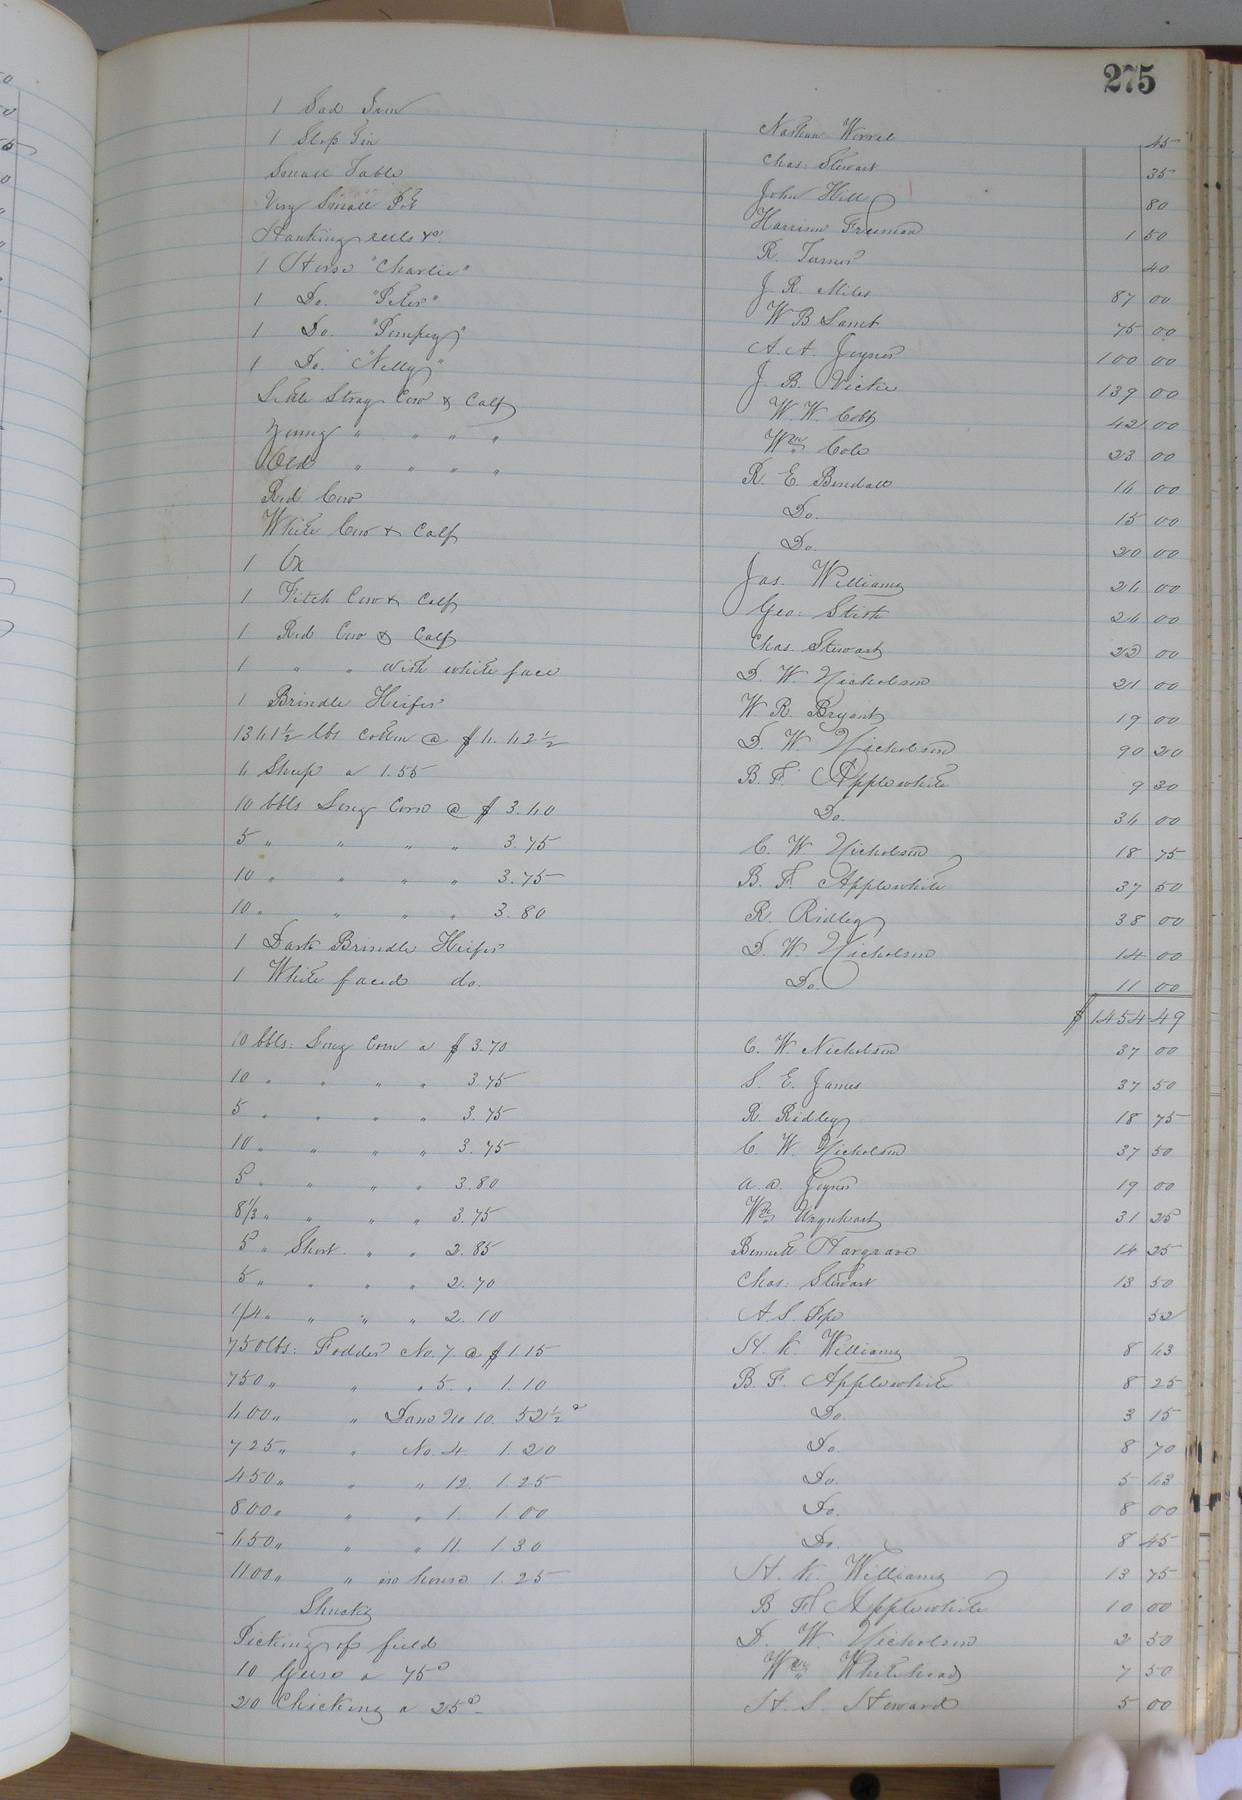 275
1 Sad Iron Nathan Worrel 45
1 Slop Tin Chas. Stewart 35
Small Table John Hill 80
Very Small Pot Harrison Freeman 1 50
Hanking reels &c. R. Turner 40
1 Horse "Charlie" J. R. Miles 87 00
1 Do. "Peter" W B Lamb 75 00
1 Do. "Pompey" A. A. Joyner 100 00
1 Do. "Nelly" J. B. Vicke 139 00
Little Stray Cow & Calf W. W. Cobb 42 00
Young " " " " Wm. Cole 23 00
Old " " " " R. E. Bendall 14 00
Red Cow Do. 15 00
White Cow & Calf Do. 20 00
1 Ox Jas. Williams 24 00
1 Fitch Cow & Calf Geo. Stith 24 00
1 Red Cow & Calf Chas Stewart 22 00
1 " " with white face D. W Nicholson 21 00
1 Brindle Heifer W R. Bryant 19 00
1341½ lbs Cotton @ $4.42½ D. W Nicholson 90 20
6 Sheep a 1.55 B. F. Applewhite 9 30
10 bbls Long Corn @ $ 3.40 Do. 34 00
5 " " " " 3.75 C. W Nicholson 18 75
10 " " " " 3.75 B. F. Applewhite 37 50
10 " " " " 3.80 R. Ridley 38 00
1 Dark Brindle Heifer D. W Nicholson 14 00
1 White faced do. Do. 11 00
$ 1454 49
10 bbls. Long Corn a $ 3.70 C. W. Nicholson 37 00
10 " " " " 3.75 S. E. James 37 50
5 " " " " 3.75 R. Ridley 18 75
10 " " " " 3.75 C. W. Nicholson 37 50
5 " " " " 3.80 A. A. Joyner 19 00
8⅓ " " " " 3.75 Wm. Urquhart 31 25
5 " Short " " 2.85 Bennett Hargrave 14 25
5 " " " " 2.70 Chas. Stewart 13 50
1/4 " " " " 2.10 A. S. Pope 52
750 lbs. Fodder No. 7 @ $ 1.15 H. K Williams 8 63
750 " " " 5. " 1.10 B. F. Applewhite 8 25
600 " " Dam No 10. 52½ c Do. 3 15
725 " " No. 4 1.20 Do. 8 70
450 " " " 12. 1.25 Do. 5 63
800 " " " 1 1.00 Do. 8 00
650 " " " 11. 1.30 Do. 8 45
1100 " " in house 1.25 H. K. Williams 13 75
Shucks B F Applewhite 10 00
Picking of field D. W. Nicholson 2 50
10 Geese a 75c Wm. Whitehead 7 50
20 Chickens a 25c H. S. Howard 5 00